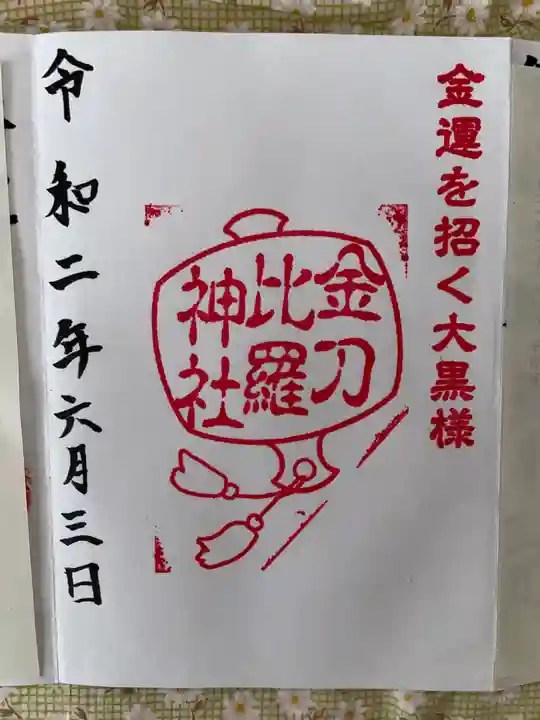 金運を招く大黒様
金刀
比羅
神社
令和二年六月三日